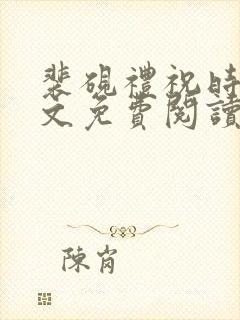 裴硯禮祝時
文免費閱讀
陳肖